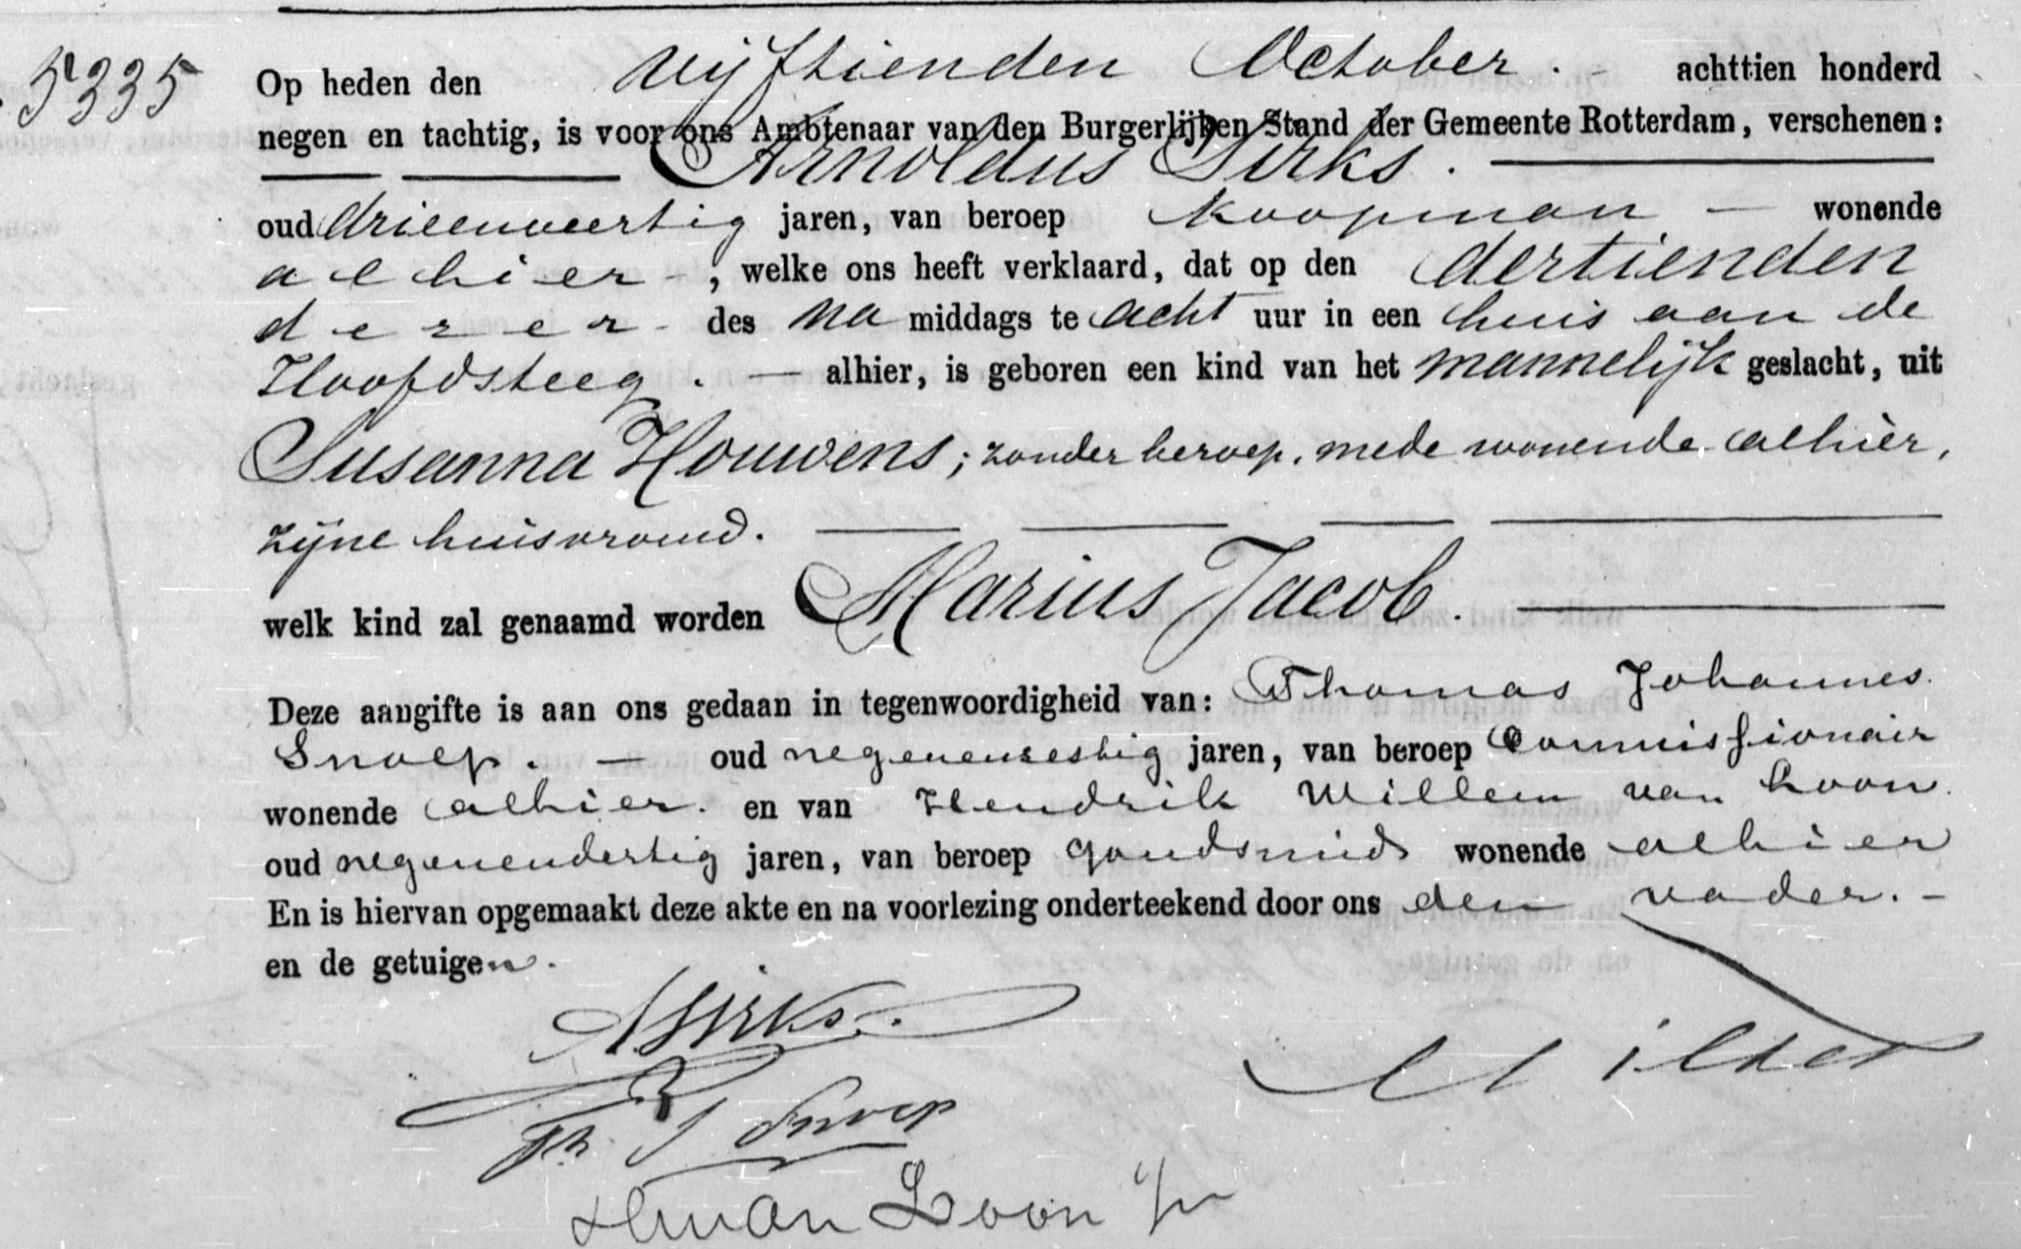 5335
Op heden den vijftienden October. - achttien honderd
negen en tachtig, is voor ons Ambtenaar van den Burgerlijken Stand der Gemeente Rotterdam, verschenen:
Arnoldus Sirks.
oud drieenveertig jaren, van beroep koopman - wonende
alhier -, welke ons heeft verklaard, dat op den dertienden
dezer - des na middags te acht uur in een huis aan de
Hoofdsteeg. - alhier, is geboren een kind van het mannelijk geslacht, uit
Susanna Houwens, zonder beroep, mede wonende alhier,
zijne huisvrouw.
welk kind zal genaamd worden Marius Jacob.
Deze aangifte is aan ons gedaan in tegenwoordigheid van: Thomas Johannes
Snoep. - oud negenenzestig jaren, van beroep Commissionair
wonende alhier. en van Hendrik Willem van Loon.
oud negenendertig jaren, van beroep goudsmid wonende alhier
En is hiervan opgemaakt deze akte en na voorlezing onderteekend door ons den vader. -
en de getuigen.
A Sirks.
Th. J Snoep
HW van Loon Jr